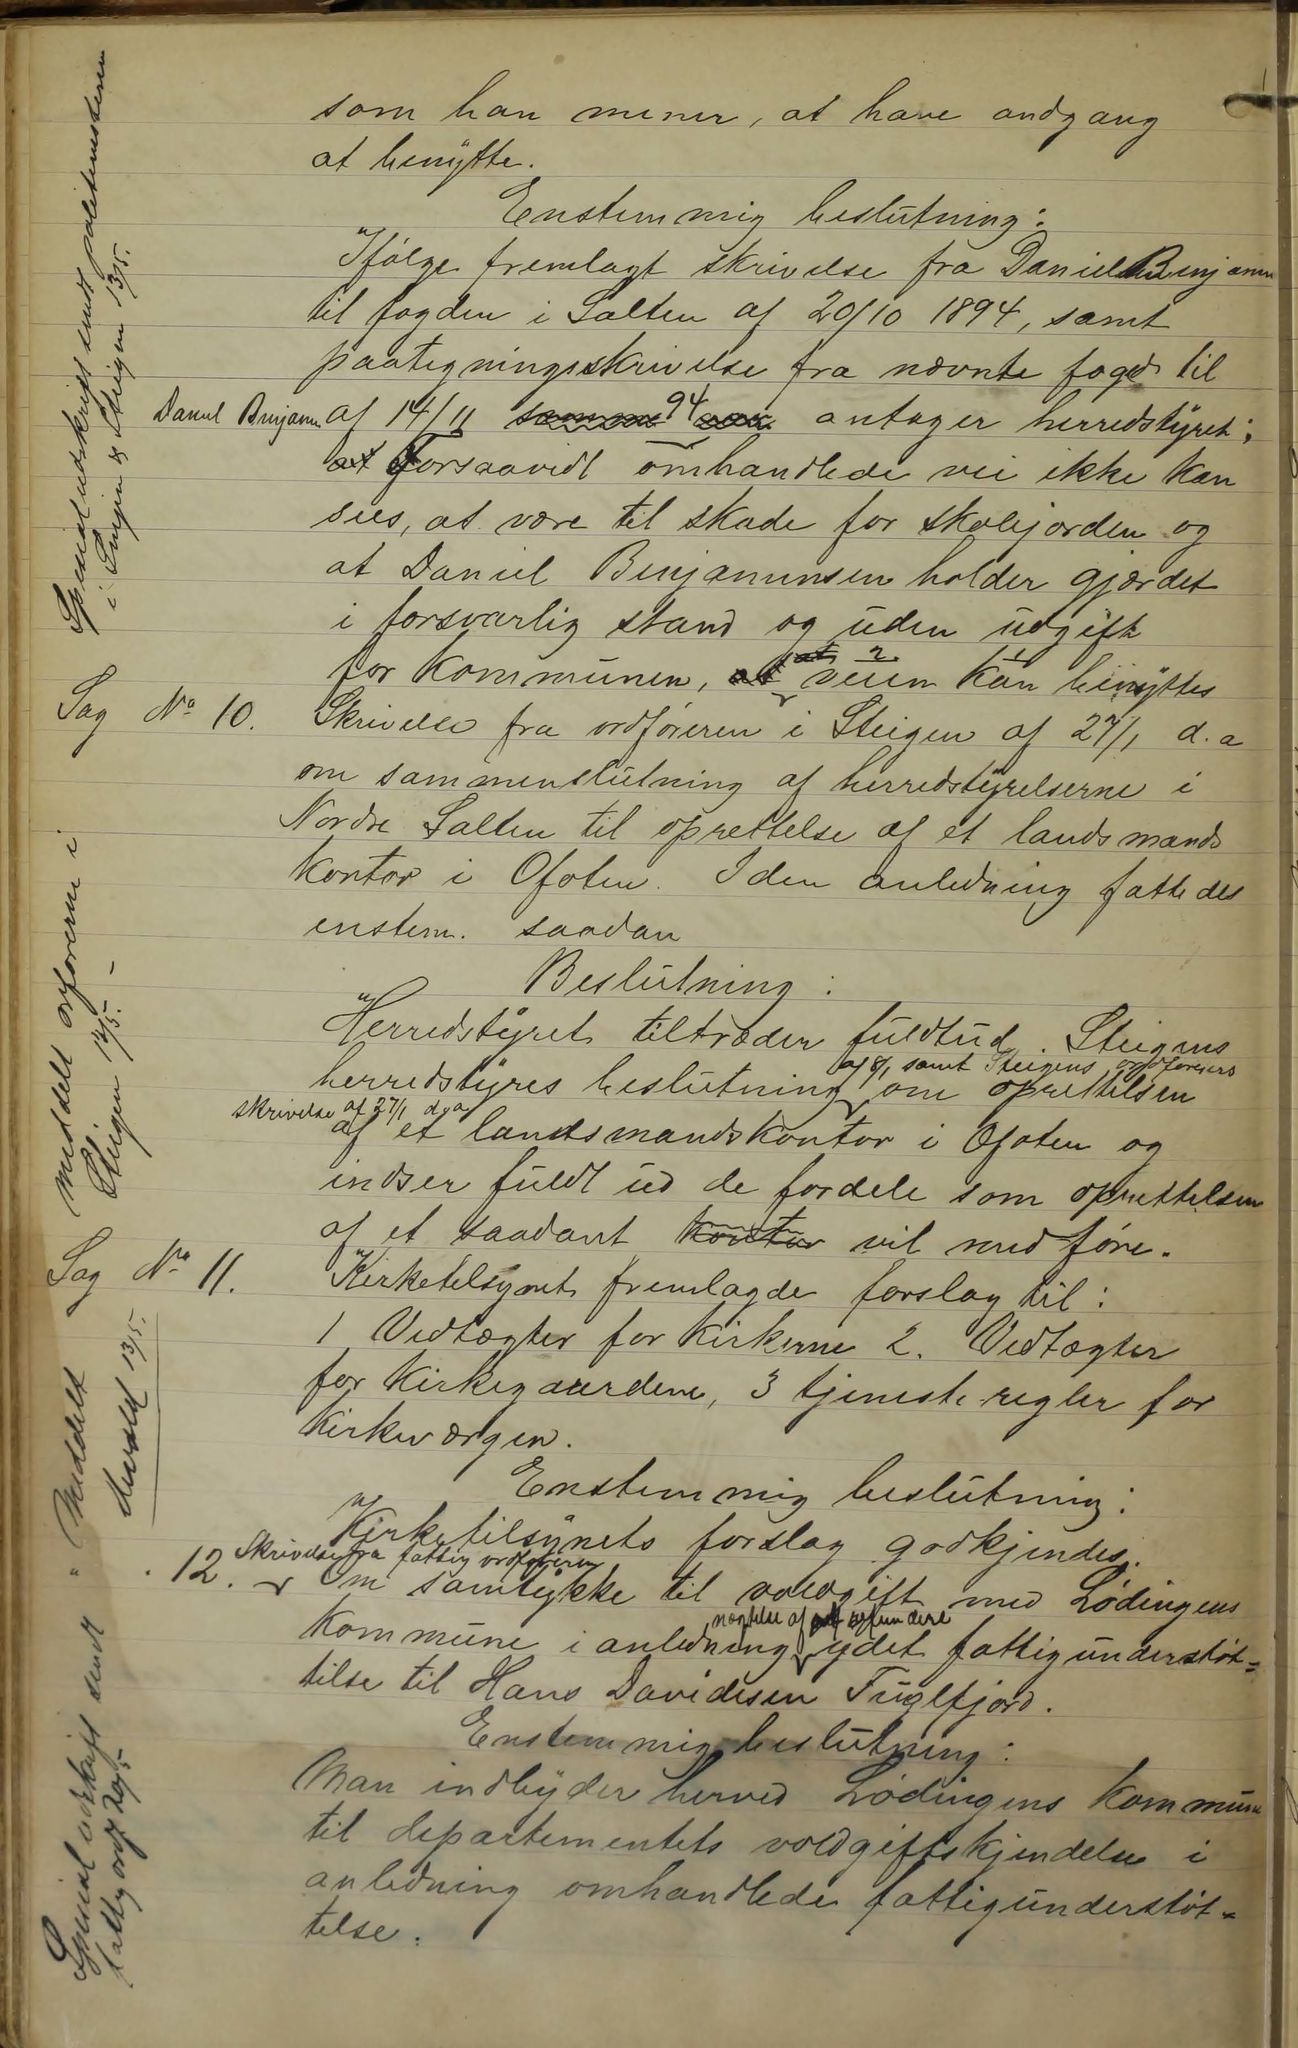 som han mener, at have andgang
at benytte.
Enstemmig beslutning:
"Ifølge fremlagt skrivelse fra Daniel Benjamin
til fogden i Salten af 20/10 1894, samt
paategningsskrivelse fra nævnte foged til
Daniel Benjamin af 14/11 94 antager herredstyret:
Forsaavidt omhandlede vei ikke kan
sees, at være til skade for skolejorden og
at Daniel Benjaminsen holder gjærdet
i forsvarlig stand og uden udgift
for kommunen, veien kan benyttes
Spesialudskrift sendt politimesteren
i Steigen 13/5.
Sag No 10. Skrivelse fra ordføreren i Steigen af 27/1 d.a
om sammenslutning af herredstyrelserne i
Nordre Salten til oprettelse af et landsmands
kontor i Ofoten. I den anledning fattedes
enstem. saadan
Beslutning:
"Herredstyret tiltræder fuldtud Steigens
herredstyres beslutning af 8/1 samt Steigens ordførers
skrivelse af 27/1 d.a om oprettelsen
af et landsmandskontor i Ofoten og
indser fuldt ud de fordele som oprettelsen
af et saadant kontor vil medføre.
meddelt orføreren i
Steigen 14/5.-
Sag No 11. "Kirketilsynet fremlagde forslag til:
1 Vedtægter for kirkerne 2. Vedtægter
for kirkegaardene, 3 tjenesteregler for
kirkeværgen.
Enstemmig beslutning:
"Kirketilsynets forslag godkjendes.
" Meddelt
13/5.
12. Skrivelse fra fattigordføreren
Om samtykke til voldgift med Lødingens
kommune i anledning nægtelse af at refundere ydet fattigunderstøt=
telse til Hans Davidsen Fuglfjord.
Enstemmig beslutning:
Man indbyder herved Lødingens kommune
til departementets voldgiftskjendelse i
anledning omhandlede fattigunderstøt=
telse.
Spesial udskrift sendt
fattig ordf 20/5